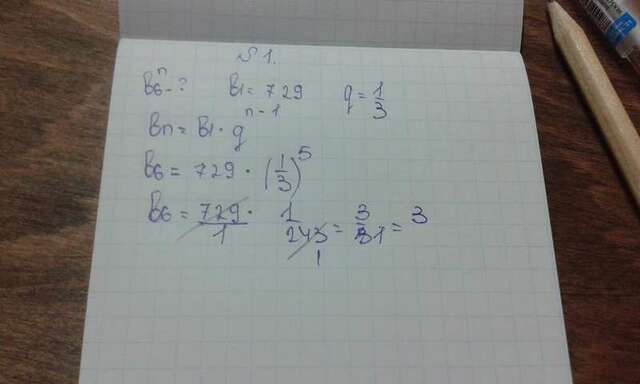 №1.
b6 - ? b1 = 729 q = 1/3
bn = b1 · q^n-1
b6 = 729 · (1/3)^5
b6 = 729/1 · 1/243 = 3/1 = 3